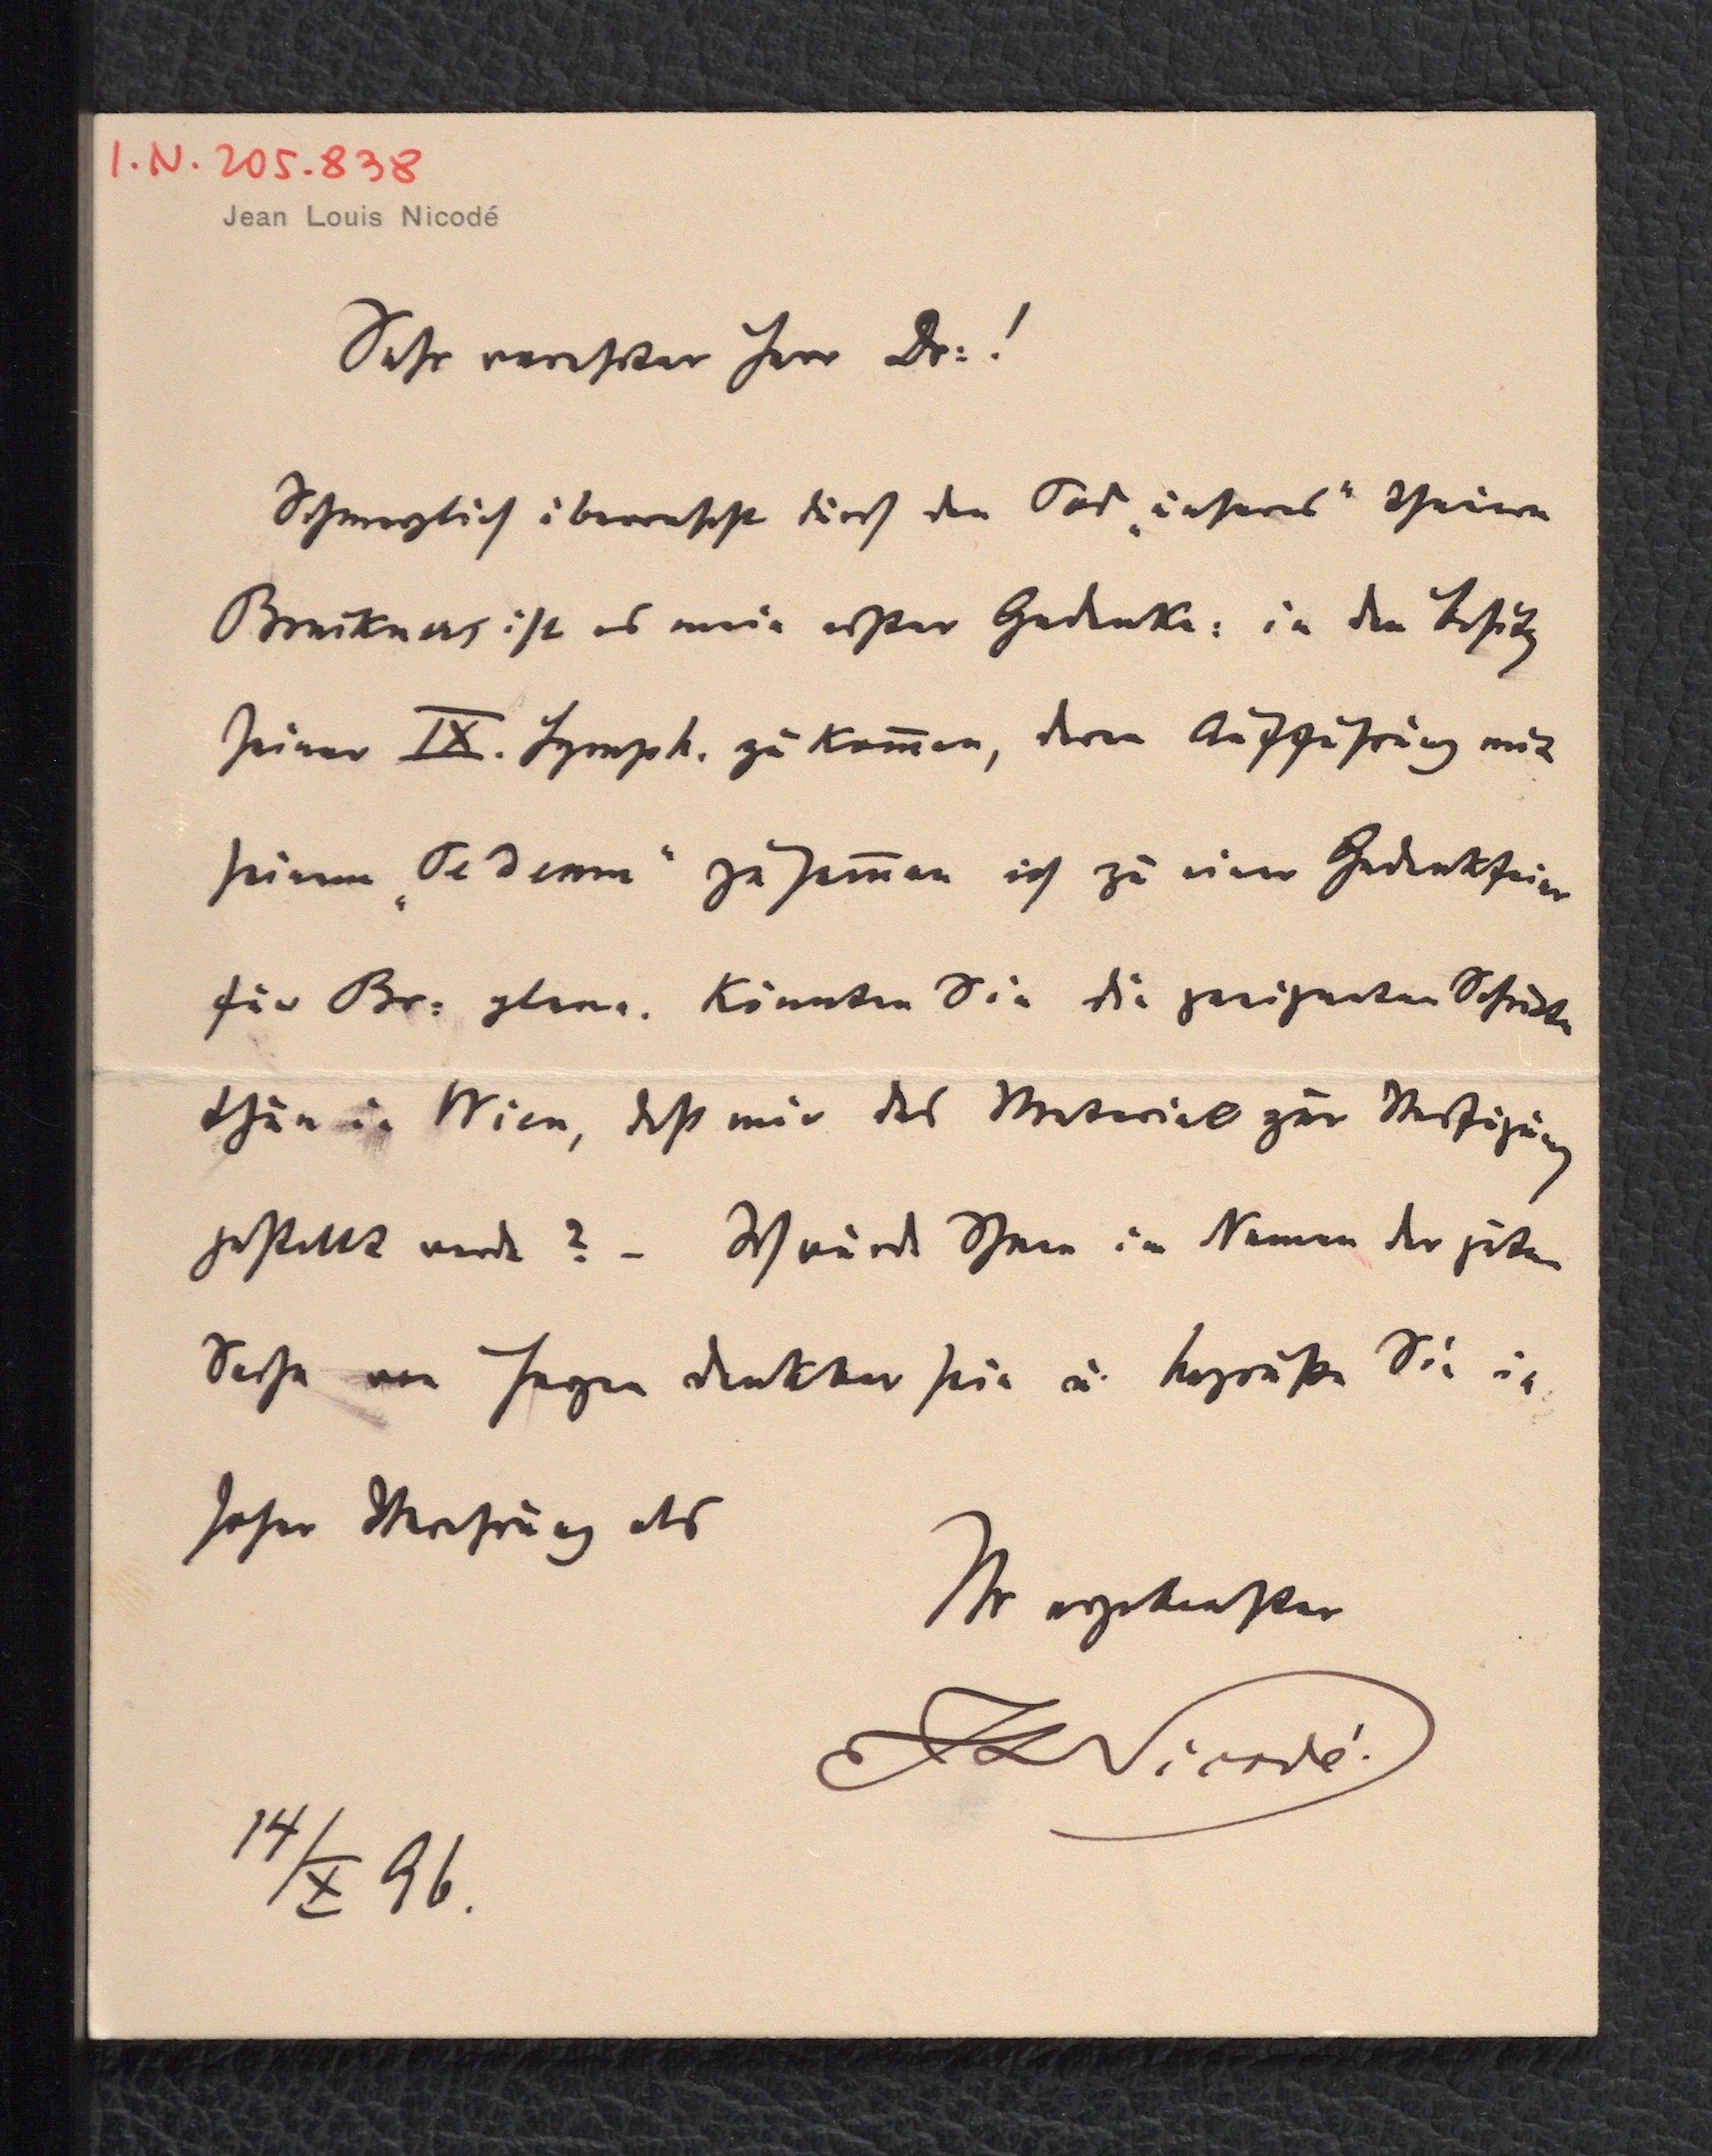 I.N. 205.838
Jean Louis Nicodé
Sehr verehrter Herr Dr:!
Schmerzlich überrascht durch den Tod „unseres“ theuren
Bruckners ist es mein erster Gedanke: in den Besitz
seiner IX. Symph. zu kom̅en, deren Aufführung mit
seinem „Te Deum“ zusam̅en ich zu einer Gedenkfeier
für Br: plane. Könnten Sie die geeigneten Schritte
thun in Wien, daß mir das Material zur Verfügung
gestellt werde? – Ich würde Ihnen im Namen der guten
Sache von Herzen dankbar sein u. begrüße Sie in
hoher Verehrung als
Ihr ergebenster
JLNicodé.
14/X 96.